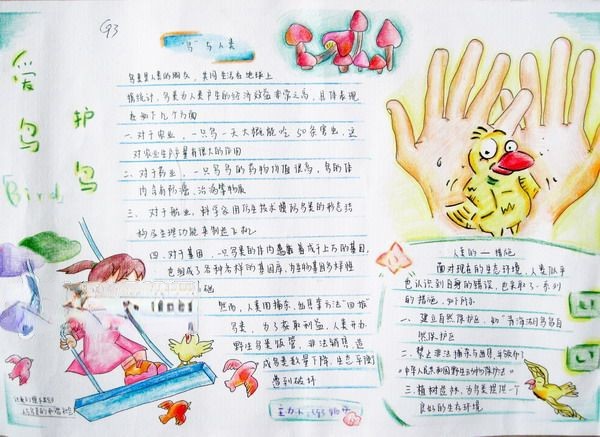 G3
爱
鸟
护
鸟
「Bird」
"鸟"与人类
鸟类是人类的朋友，共同生活在地球上
据统计，鸟类为人类产生的经济效益非常之高，具体表现
在如下几个方面
一、对于农业，一只鸟一天大概能吃50条害虫，这
对农业生产有很大的作用
二、对于药业，一只鸟鸟的药物价值很高，鸟的体
内含有防癌、治病等物质
三、对于航业，科学家用仿生技术模仿鸟类的形态结
构及生理功能来制造飞机
四、对于基因，一只鸟类的体内蕴藏着成千上万的基因，
然而，人类用捕杀、出售等方法"回报"
鸟类，为了获取利益，人类开办
野生鸟类饭馆，非法销售，造
成鸟类数量下降，生态平衡
遭到破坏
人类的一措施
面对现在的生态环境，人类似乎
也认识到自身的错误，也采取了一系列
的措施，如下所示
一、建立自然保护区，如"青海湖鸟岛自
然保护区"
二、禁止非法捕杀与出售，并颁布了
《中华人民共和国野生动物保护法》
三、植树造林，为鸟类提供一个
良好的生存环境